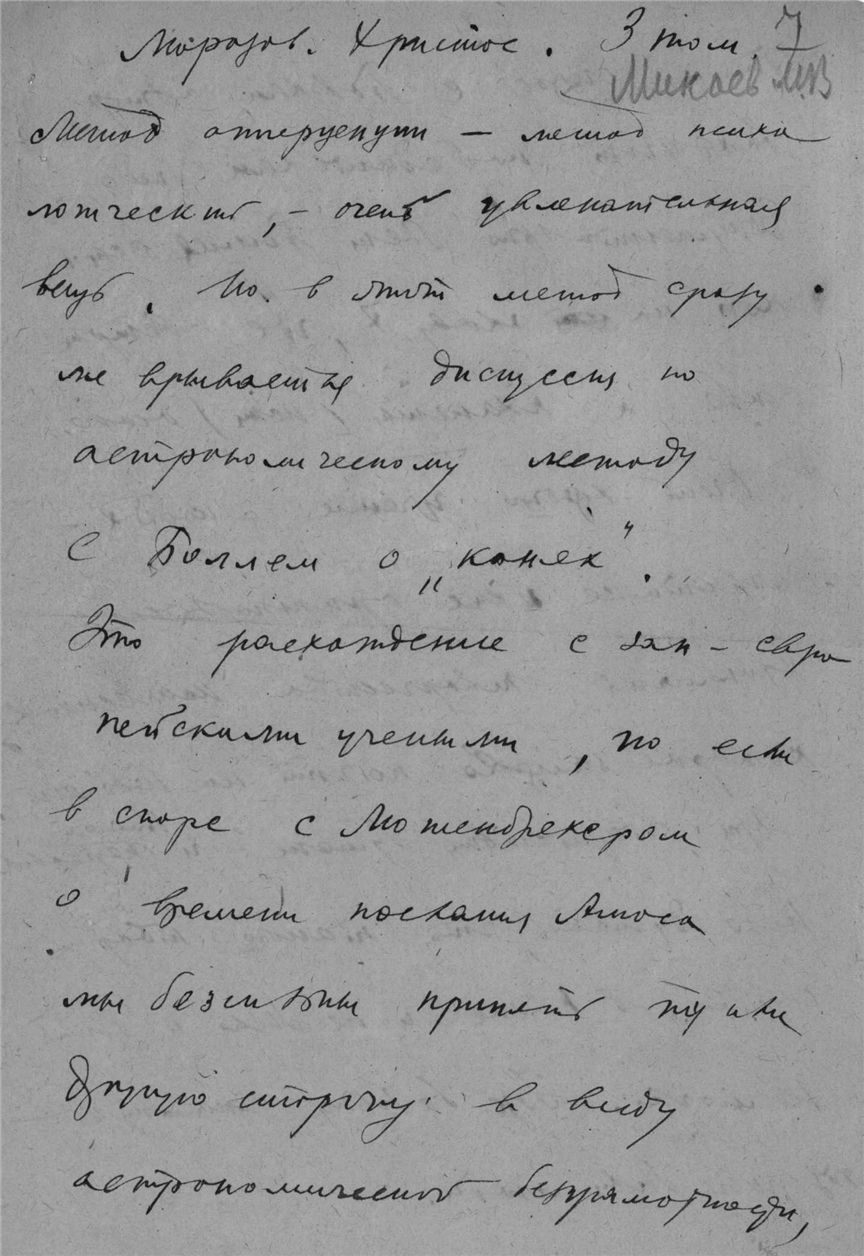 Морозов. Христос. 3 том. 7
Минаев М.В
Метод — метод психо
логический, – очень увлекательная
вещь. Но в этот метод сразу
же врывается дискуссия по
астрономическому методу
с Боллем о „конях".
Это расхождение с зап – евро
пейскими учеными, но если
в споре с
о времени послания Амоса
мы бессильны принять ту или
другую сторону в виду
астрономической безграмотности,